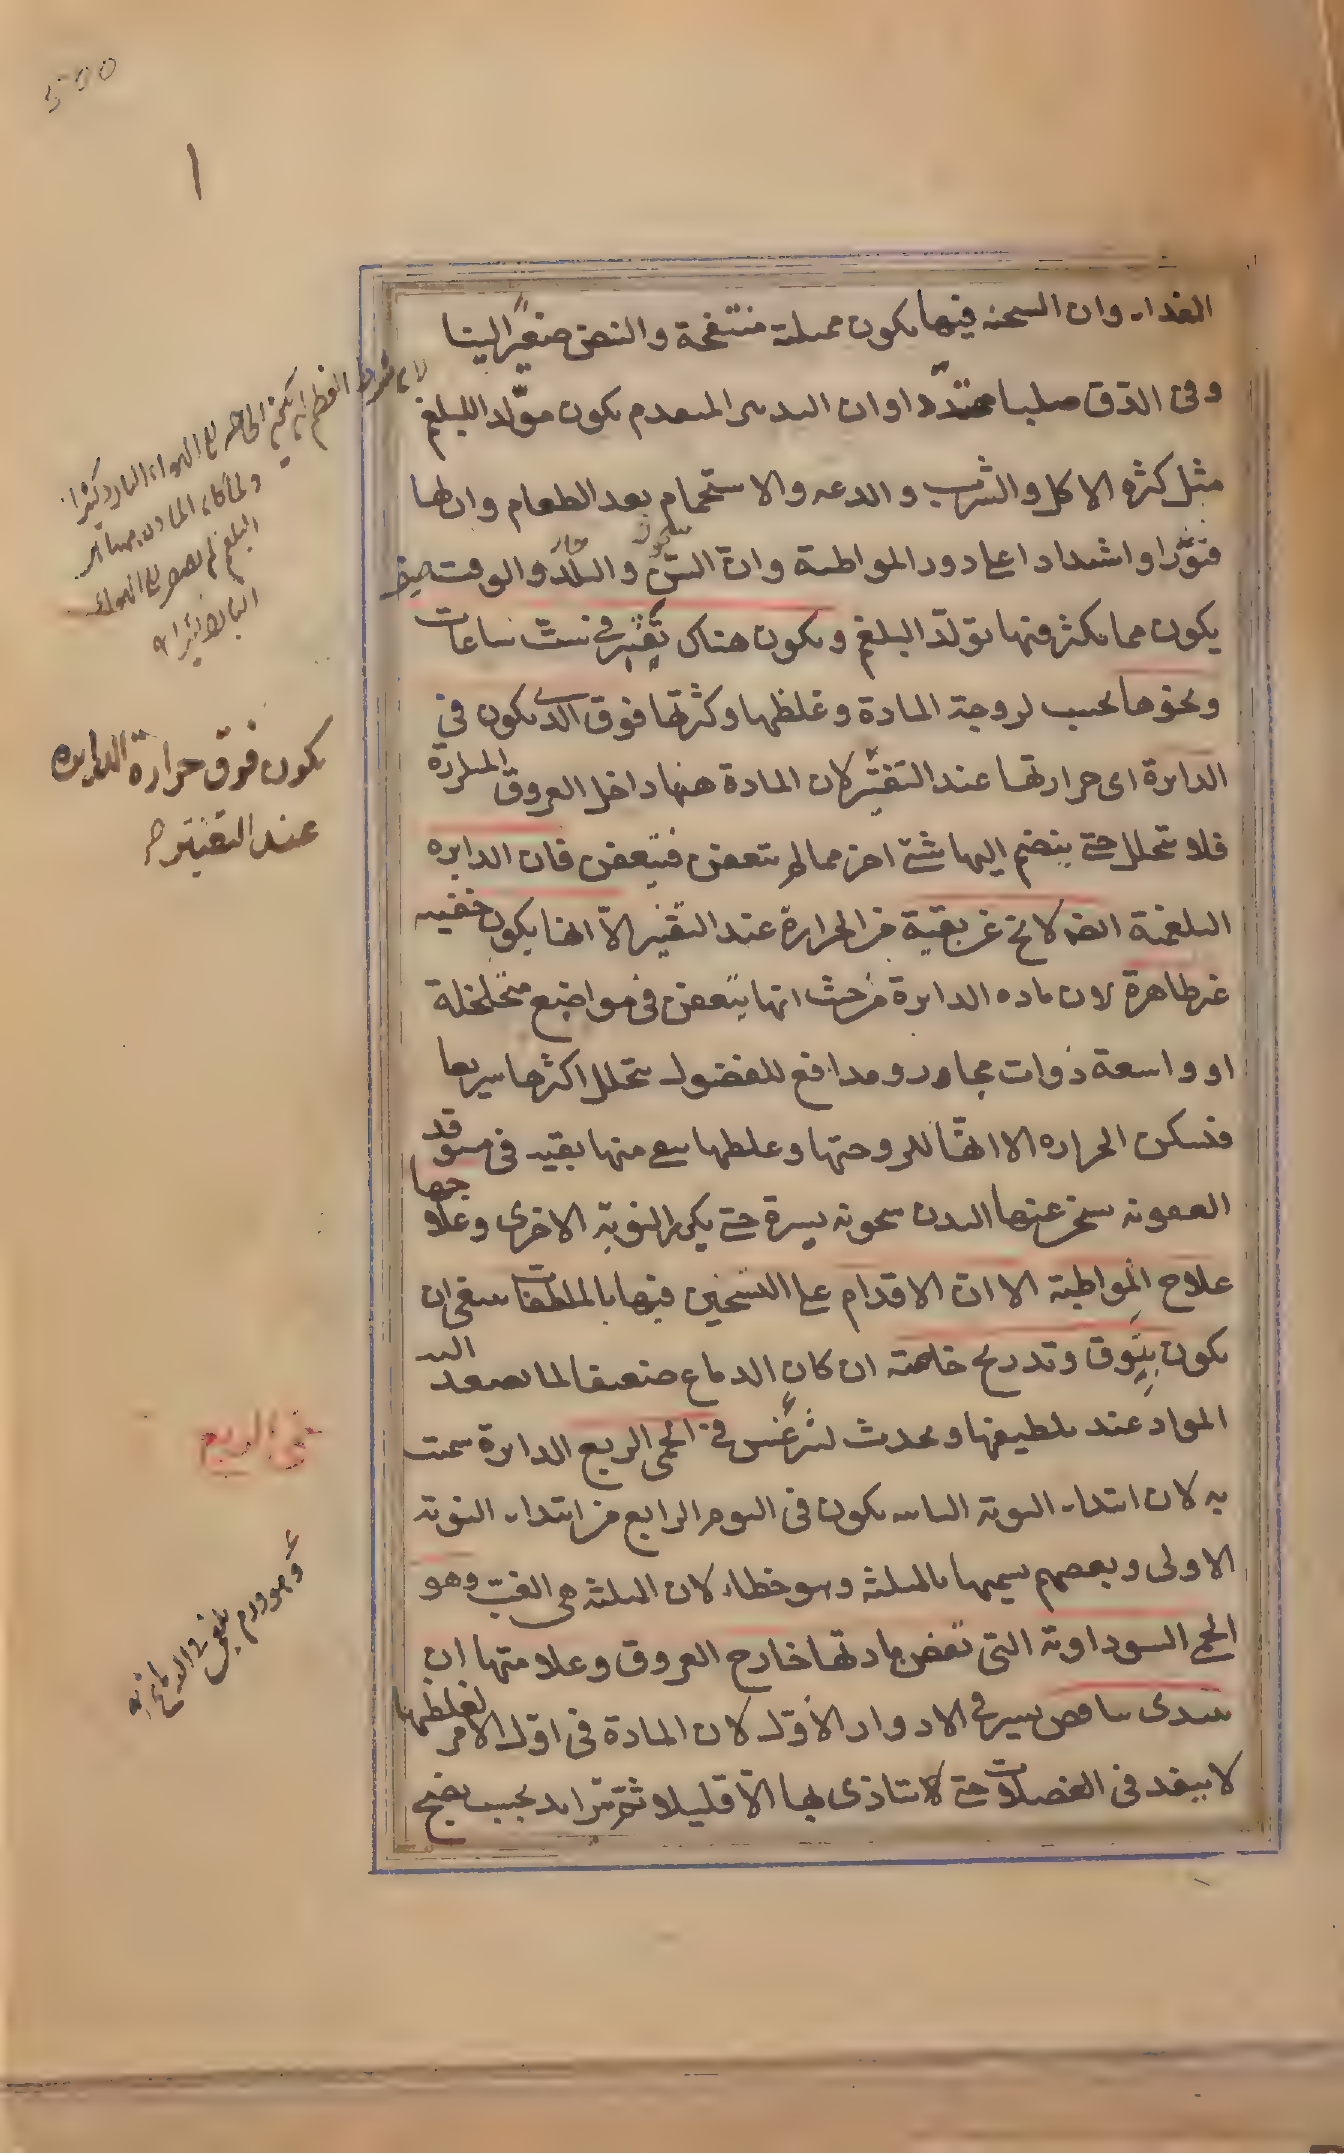 الغداء وان السحنه فيها يكون ممتلية منتفخة والنبض صغيرا لينا
وفى الدق صلبا متمددا وان التدبير المتقدم يكون مولدا للبلغم
مثل كثرة الاكل والشرب والدعه والاستحمام بعد الطعام وانها
فتورا واشتدادا على دور المواظبة وان السن والبلد والوقت
يكون مما يكثر فيها تولد البلغم ويكون هناك تفتير فى ست ساعات
ونحوها بحسب لزوجة المادة وغلظها وكثرتها فوق الذى يكون فى
الدايرة اى حرارتها عند التفتير لان المادة ههنا داخل العروق
فلا تتحلل حتى ينضم اليها شئ اخر مما لم يتعفن فيتعفن فان الدايره
البلغمية ايضا لا يخ عن بقية من الحرارة عند التفتير الا انها يكون خفيه
غير ظاهرة لان ماده الدايرة من حيث انها يتعفن فى مواضع متخلخلة
او واسعة ذوات مجارى ومدافع للفضول يتحلل اكثرها سريعا
فتسكن الحراره الا انها للزوجتها وغلظها يبقى منها بقيه فى مستوقد
العفونه يسخن عنها البدن سخونه يسيرة حتى يكر النوبة الاخرى وعلاجها
علاج المواظبة الا ان الاقدام على التسخين فيها بالملطفات ينبغى ان
يكون بتوق وتدريج خاصة ان كان الدماغ ضعيفا لما يصعد اليه
المواد عند تلطيفها ويحدث ليثرغس فى الحمى الربع الدايرة سميت
به لان ابتداء النوبة الثانيه يكون فى اليوم الرابع من ابتداء النوبة
الاولى وبعضهم يسميها بالمثلثة وهو خطاء لان المثلثة هى الغب وهو
الحمى السوداوية التى تعفن مادتها خارج العروق وعلامتها ان
تبتدى بنافض يسير فى الادوار الاول لان المادة فى اول الامر لغلظها
لا ينفذ فى العضلات حتى لا يتاذى بها الا قليلا ثم تتزايد بحسب نضج
يكون فوق حرارة الدايره
عند التفتير
فى الربع
وهو ورم بلغمى فى الدماغ